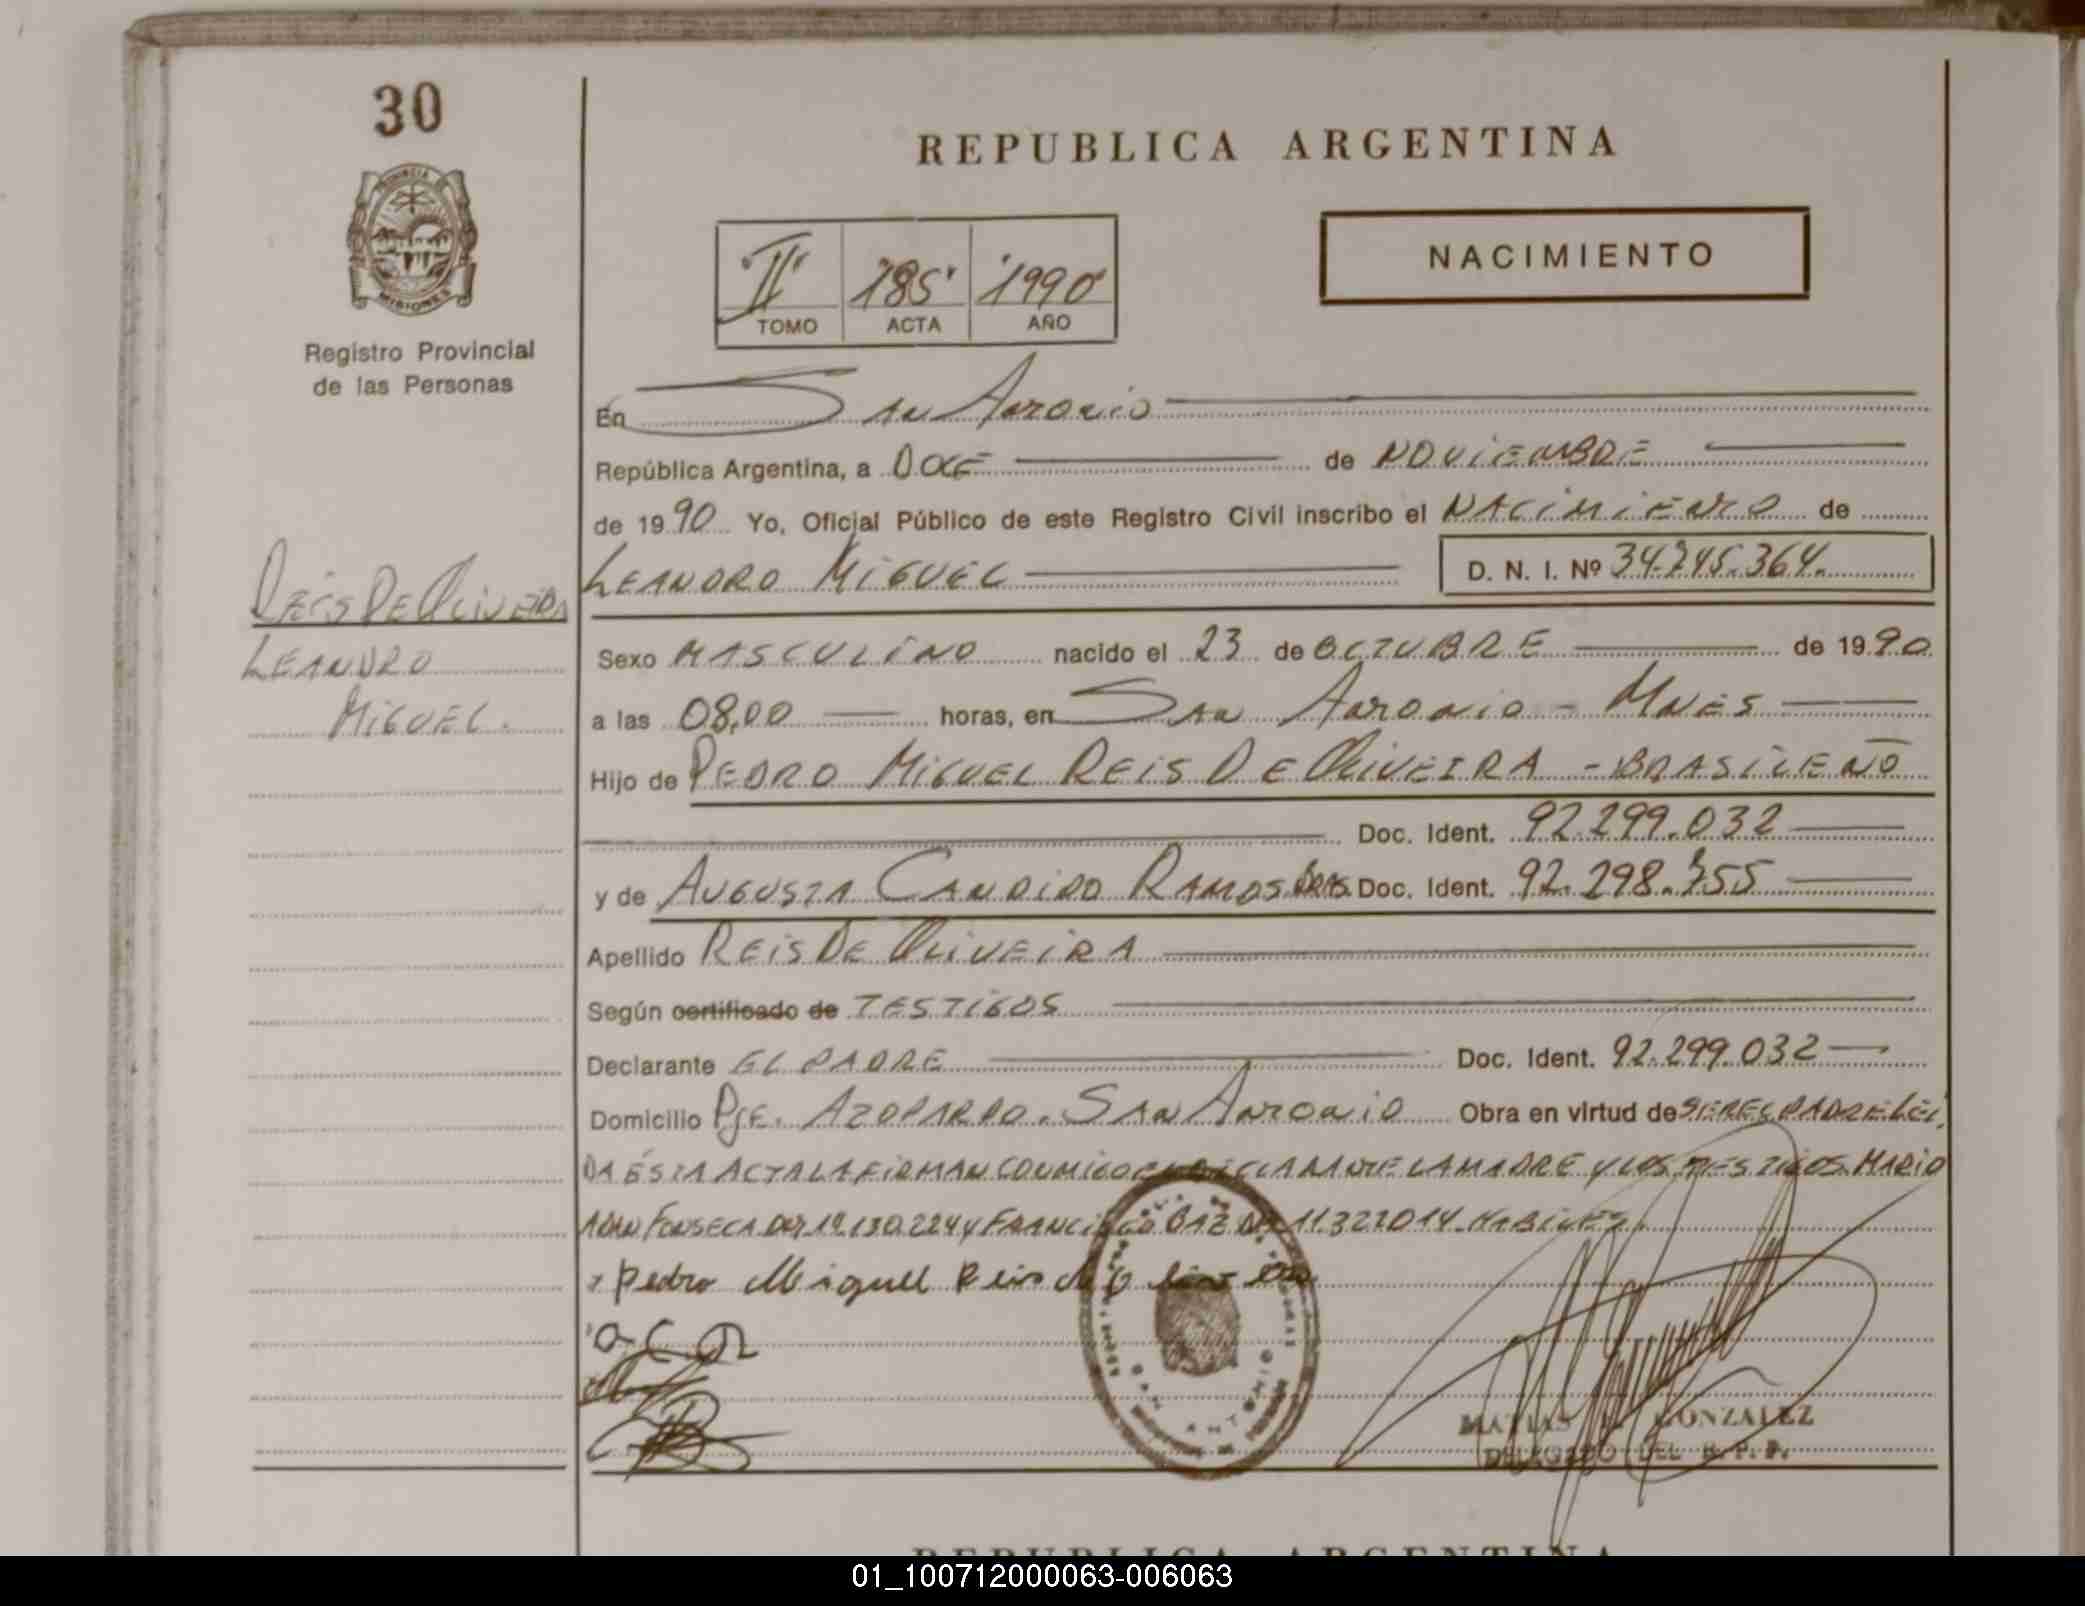 30
REPUBLICA ARGENTINA
PROVINCIA DE
MISIONES
NACIMIENTO
"II" 185' '1990'
TOMO ACTA AÑO
Registro Provincial
de las Personas
En San Antonio
República Argentina, a DOCE de NOVIEMBRE
de 1990 Yo, Oficial Público de este Registro Civil inscribo el NACIMIENTO de
LEANDRO MIGUEL D. N. I. Nº 34.245.364.
REIS DE OLIVEIRA
LEANDRO
MIGUEL.
Sexo MASCULINO nacido el 23 de OCTUBRE de 1990
a las 08,00 horas, en San Antonio - Mnes
Hijo de PEDRO MIGUEL REIS DE OLIVEIRA - BRASILEÑO
Doc. Ident. 92.299.032
y de AUGUSTA CANDIDO RAMOS BRAS. Doc. Ident. 92.298.355
Apellido REIS DE OLIVEIRA
Según certificado de TESTIGOS
Declarante EL PADRE Doc. Ident. 92.299.032
Domicilio Pje. AZOPARDO. SAN ANTONIO Obra en virtud de SER EL PADRE LEI
DA ÉSTA ACTA LA FIRMAN CONMIGO EL DECLARANTE LA MADRE Y LOS TESTIGOS MARIO
FONSECA Y FRANCISCO 11.322014 HABILES
Pedro Miguel Reis de Oliveira
a C R
SAN ANTONIO
MATIAS GONZALEZ
DELEGADO DEL R. P. P.
REPUBLICA ARGENTINA
01_100712000063-006063